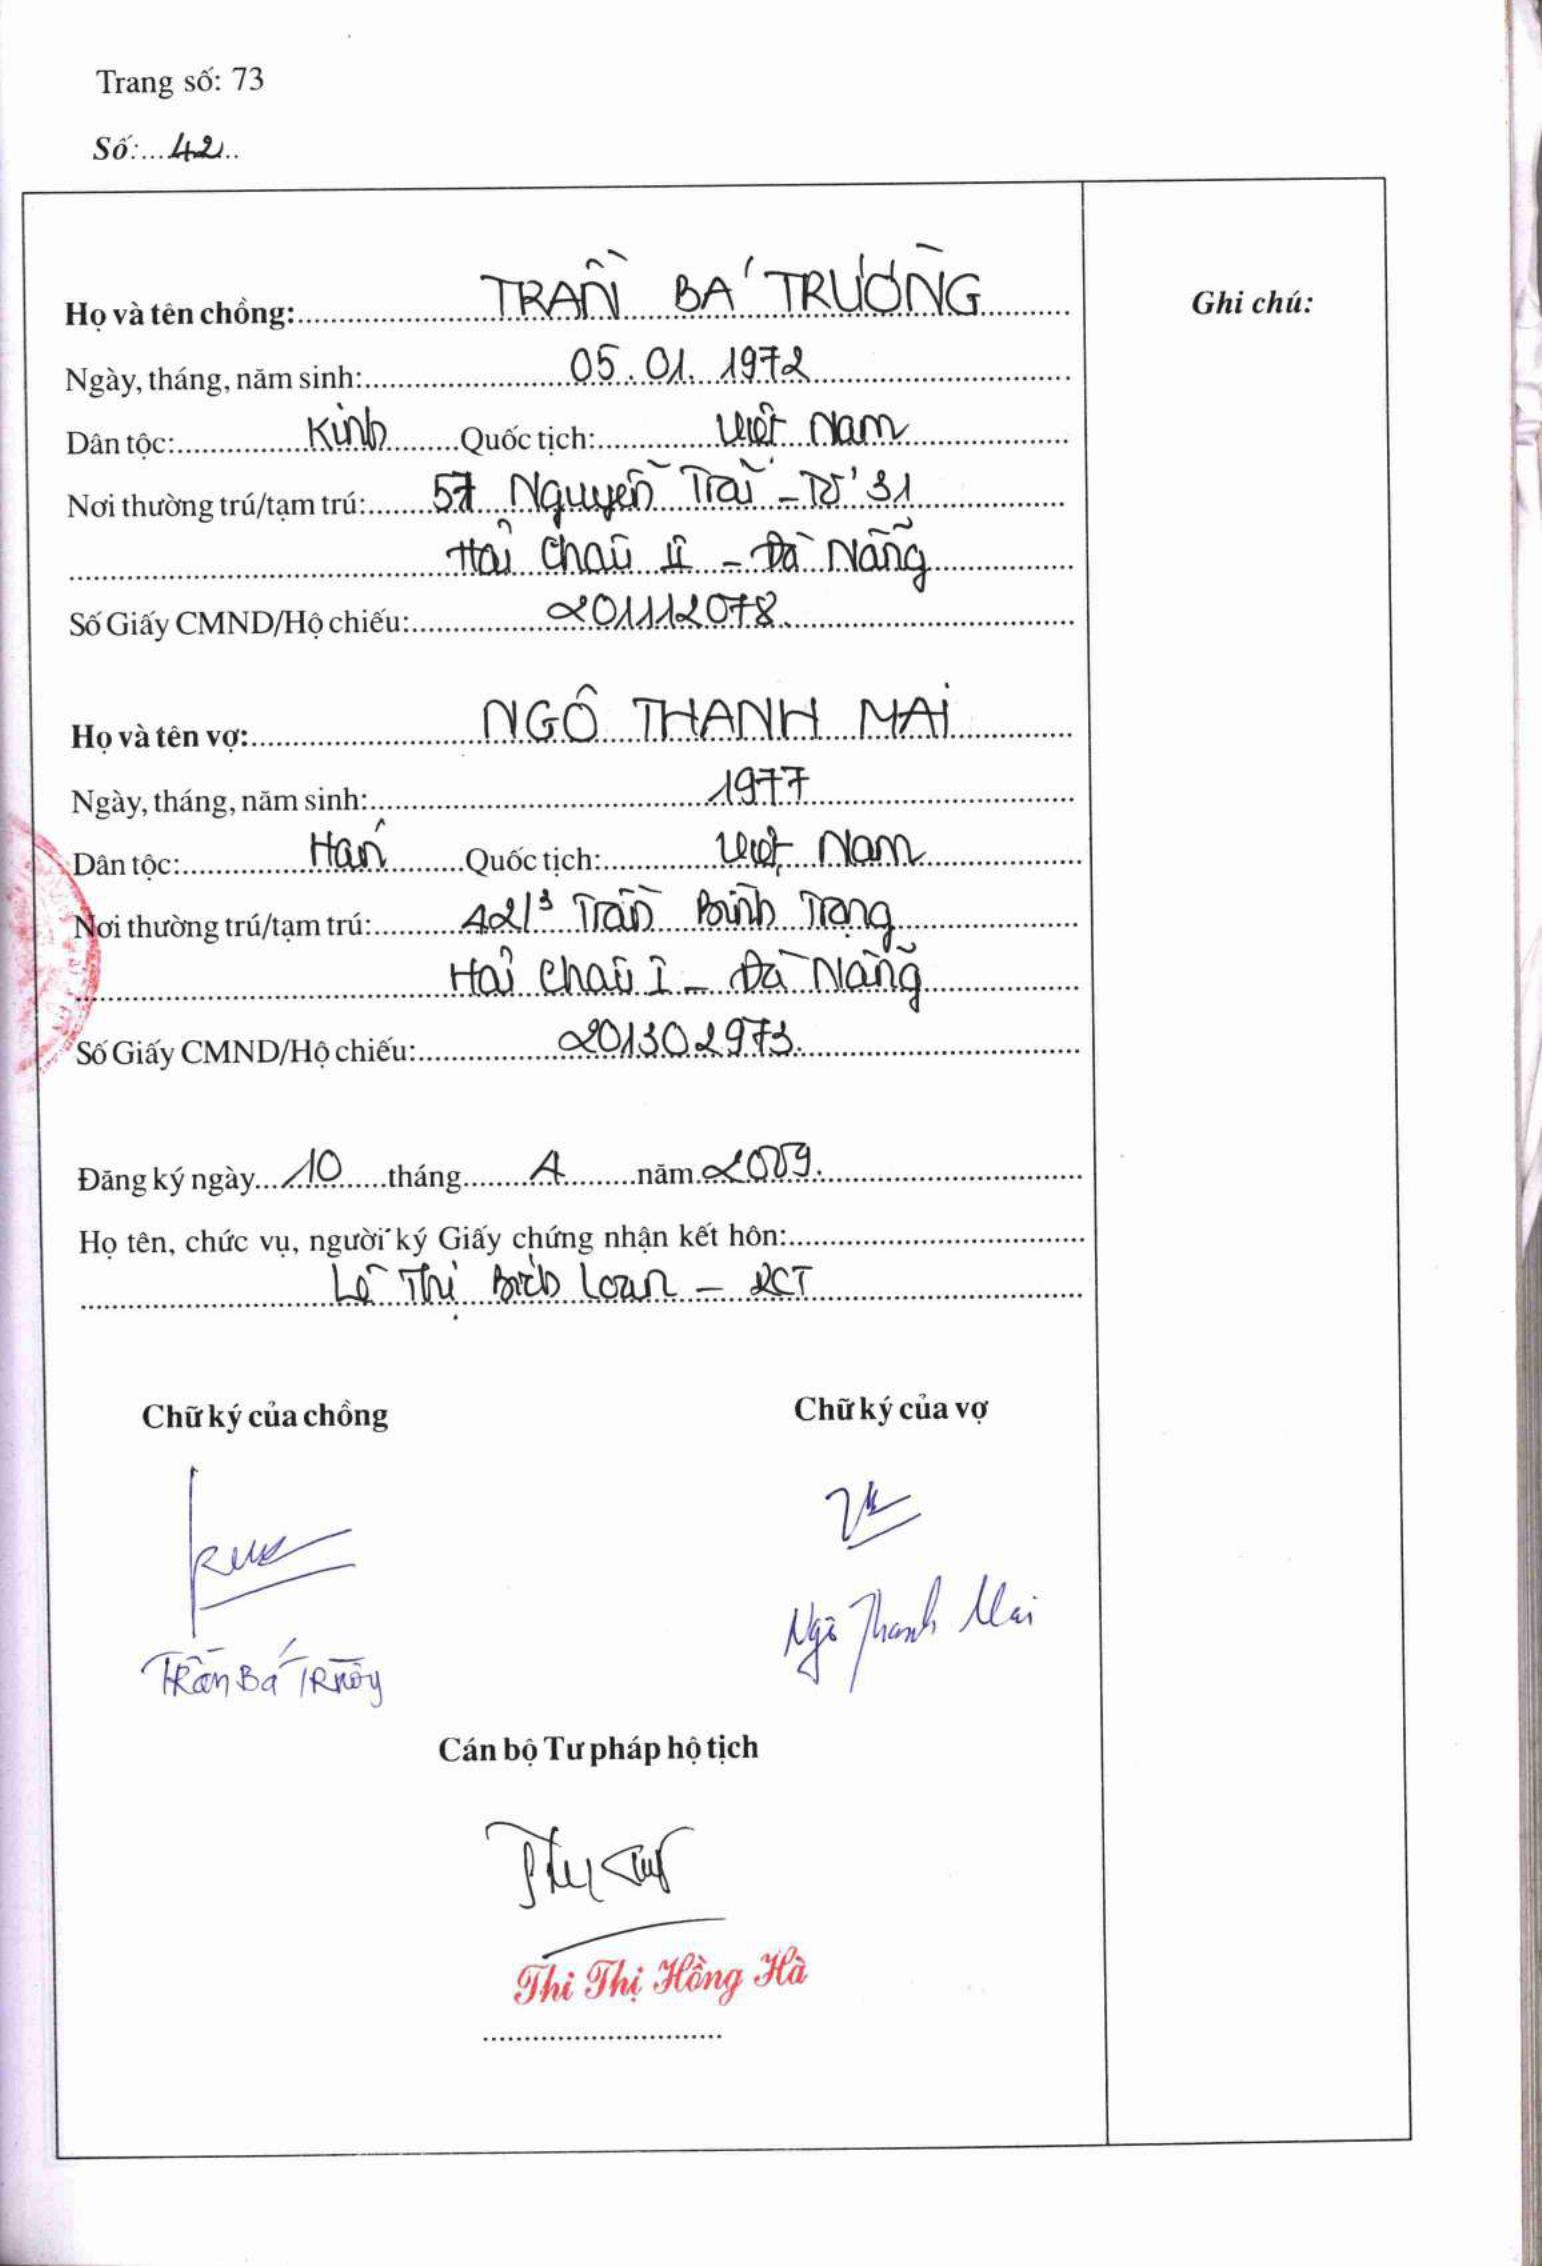 Trang số: 73
Số: 42
Ghi chú:
Họ và tên chồng: TRẦN BÁ TRƯỜNG
Ngày, tháng, năm sinh: 05.01.1972
Dân tộc: Kinh Quốc tịch: Việt Nam
Nơi thường trú/tạm trú: 57 Nguyễn Trãi - Tổ 31
Hải Châu II - Đà Nẵng
Số Giấy CMND/Hộ chiếu: 201112078
Họ và tên vợ: NGÔ THANH MAI
Ngày, tháng, năm sinh: 1977
Dân tộc: Hán Quốc tịch: Việt Nam
Nơi thường trú/tạm trú: Trần Bình Trọng
Hải Châu I - Đà Nẵng
Số Giấy CMND/Hộ chiếu: 201302973
Đăng ký ngày 10 tháng năm 2009.
Họ tên, chức vụ, người ký Giấy chứng nhận kết hôn:
Lê Thị Bích Loan - PCT
Chữ ký của chồng
Chữ ký của vợ
Trần Bá Trường
Ngô Thanh Mai
Cán bộ Tư pháp hộ tịch
Thi Thị Hồng Hà